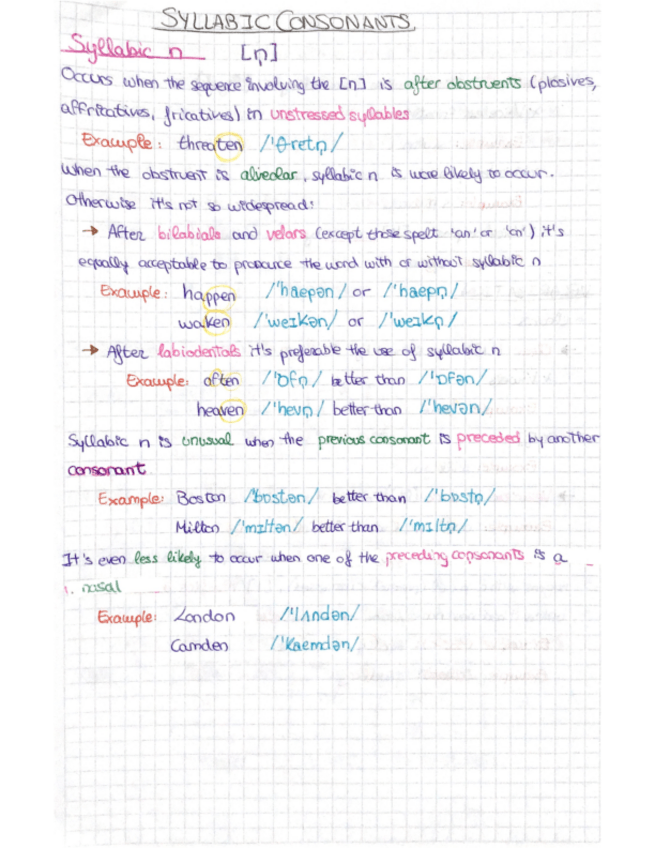 SYLLABIC CONSONANTS
Syllabic n [n̩]
Occurs when the sequence involving the [n̩] is after obstruents (plosives,
affritatives, fricatives) in unstressed syllables
Example: threaten /'θretn̩/
When the obstruent is alveolar, syllabic n is more likely to occur.
Otherwise it's not so widespread:
→ After bilabials and velars (except those spelt 'an' or 'on') it's
equally acceptable to pronounce the word with or without syllabic n
Example: happen /'hæpən/ or /'hæpn̩/
waken /'weɪkən/ or /'weɪkn̩/
→ After labiodentals it's preferable the use of syllabic n
Example: often /'ɒfn̩/ better than /'ɒfən/
heaven /'hevn̩/ better than /'hevən/
Syllabic n is unusual when the previous consonant is preceded by another
consonant
Example: Boston /'bostən/ better than /'bostn̩/
Milton /'mɪltən/ better than /'mɪltn̩/
It's even less likely to occur when one of the preceding consonants is a
nasal
Example: London /'lʌndən/
Camden /'kaemdən/